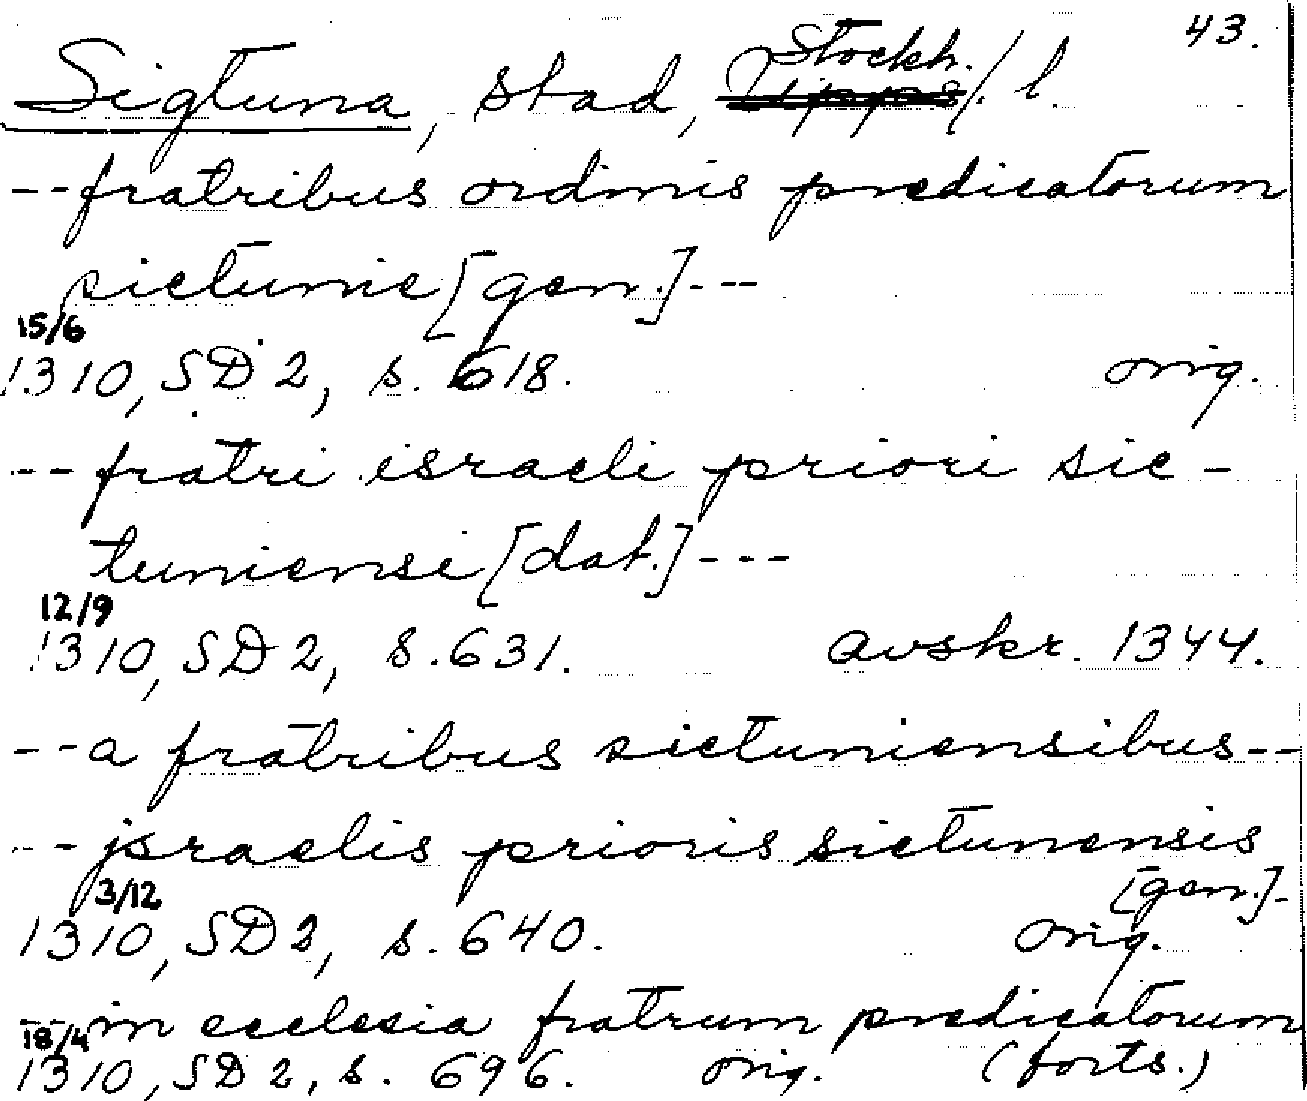 43.
Sigtuna, stad, Stockh. l.
-- fratribus ordinis predicatorum
sictunie [gen.] ---
15/6
1310, SD 2, s. 618. orig.
-- fratri israeli priori sic-
tuniensi [dat.] ---
12/9
1310, SD 2, s. 631. avskr. 1344.
-- a fratribus sictuniensibus --
-- jsraelis prioris sictunensis
[gen.] -
3/12
1310, SD 2, s. 640. orig.
-- in ecclesia fratrum predicatorum
18/4
1310, SD 2, s. 696. orig. (forts.)